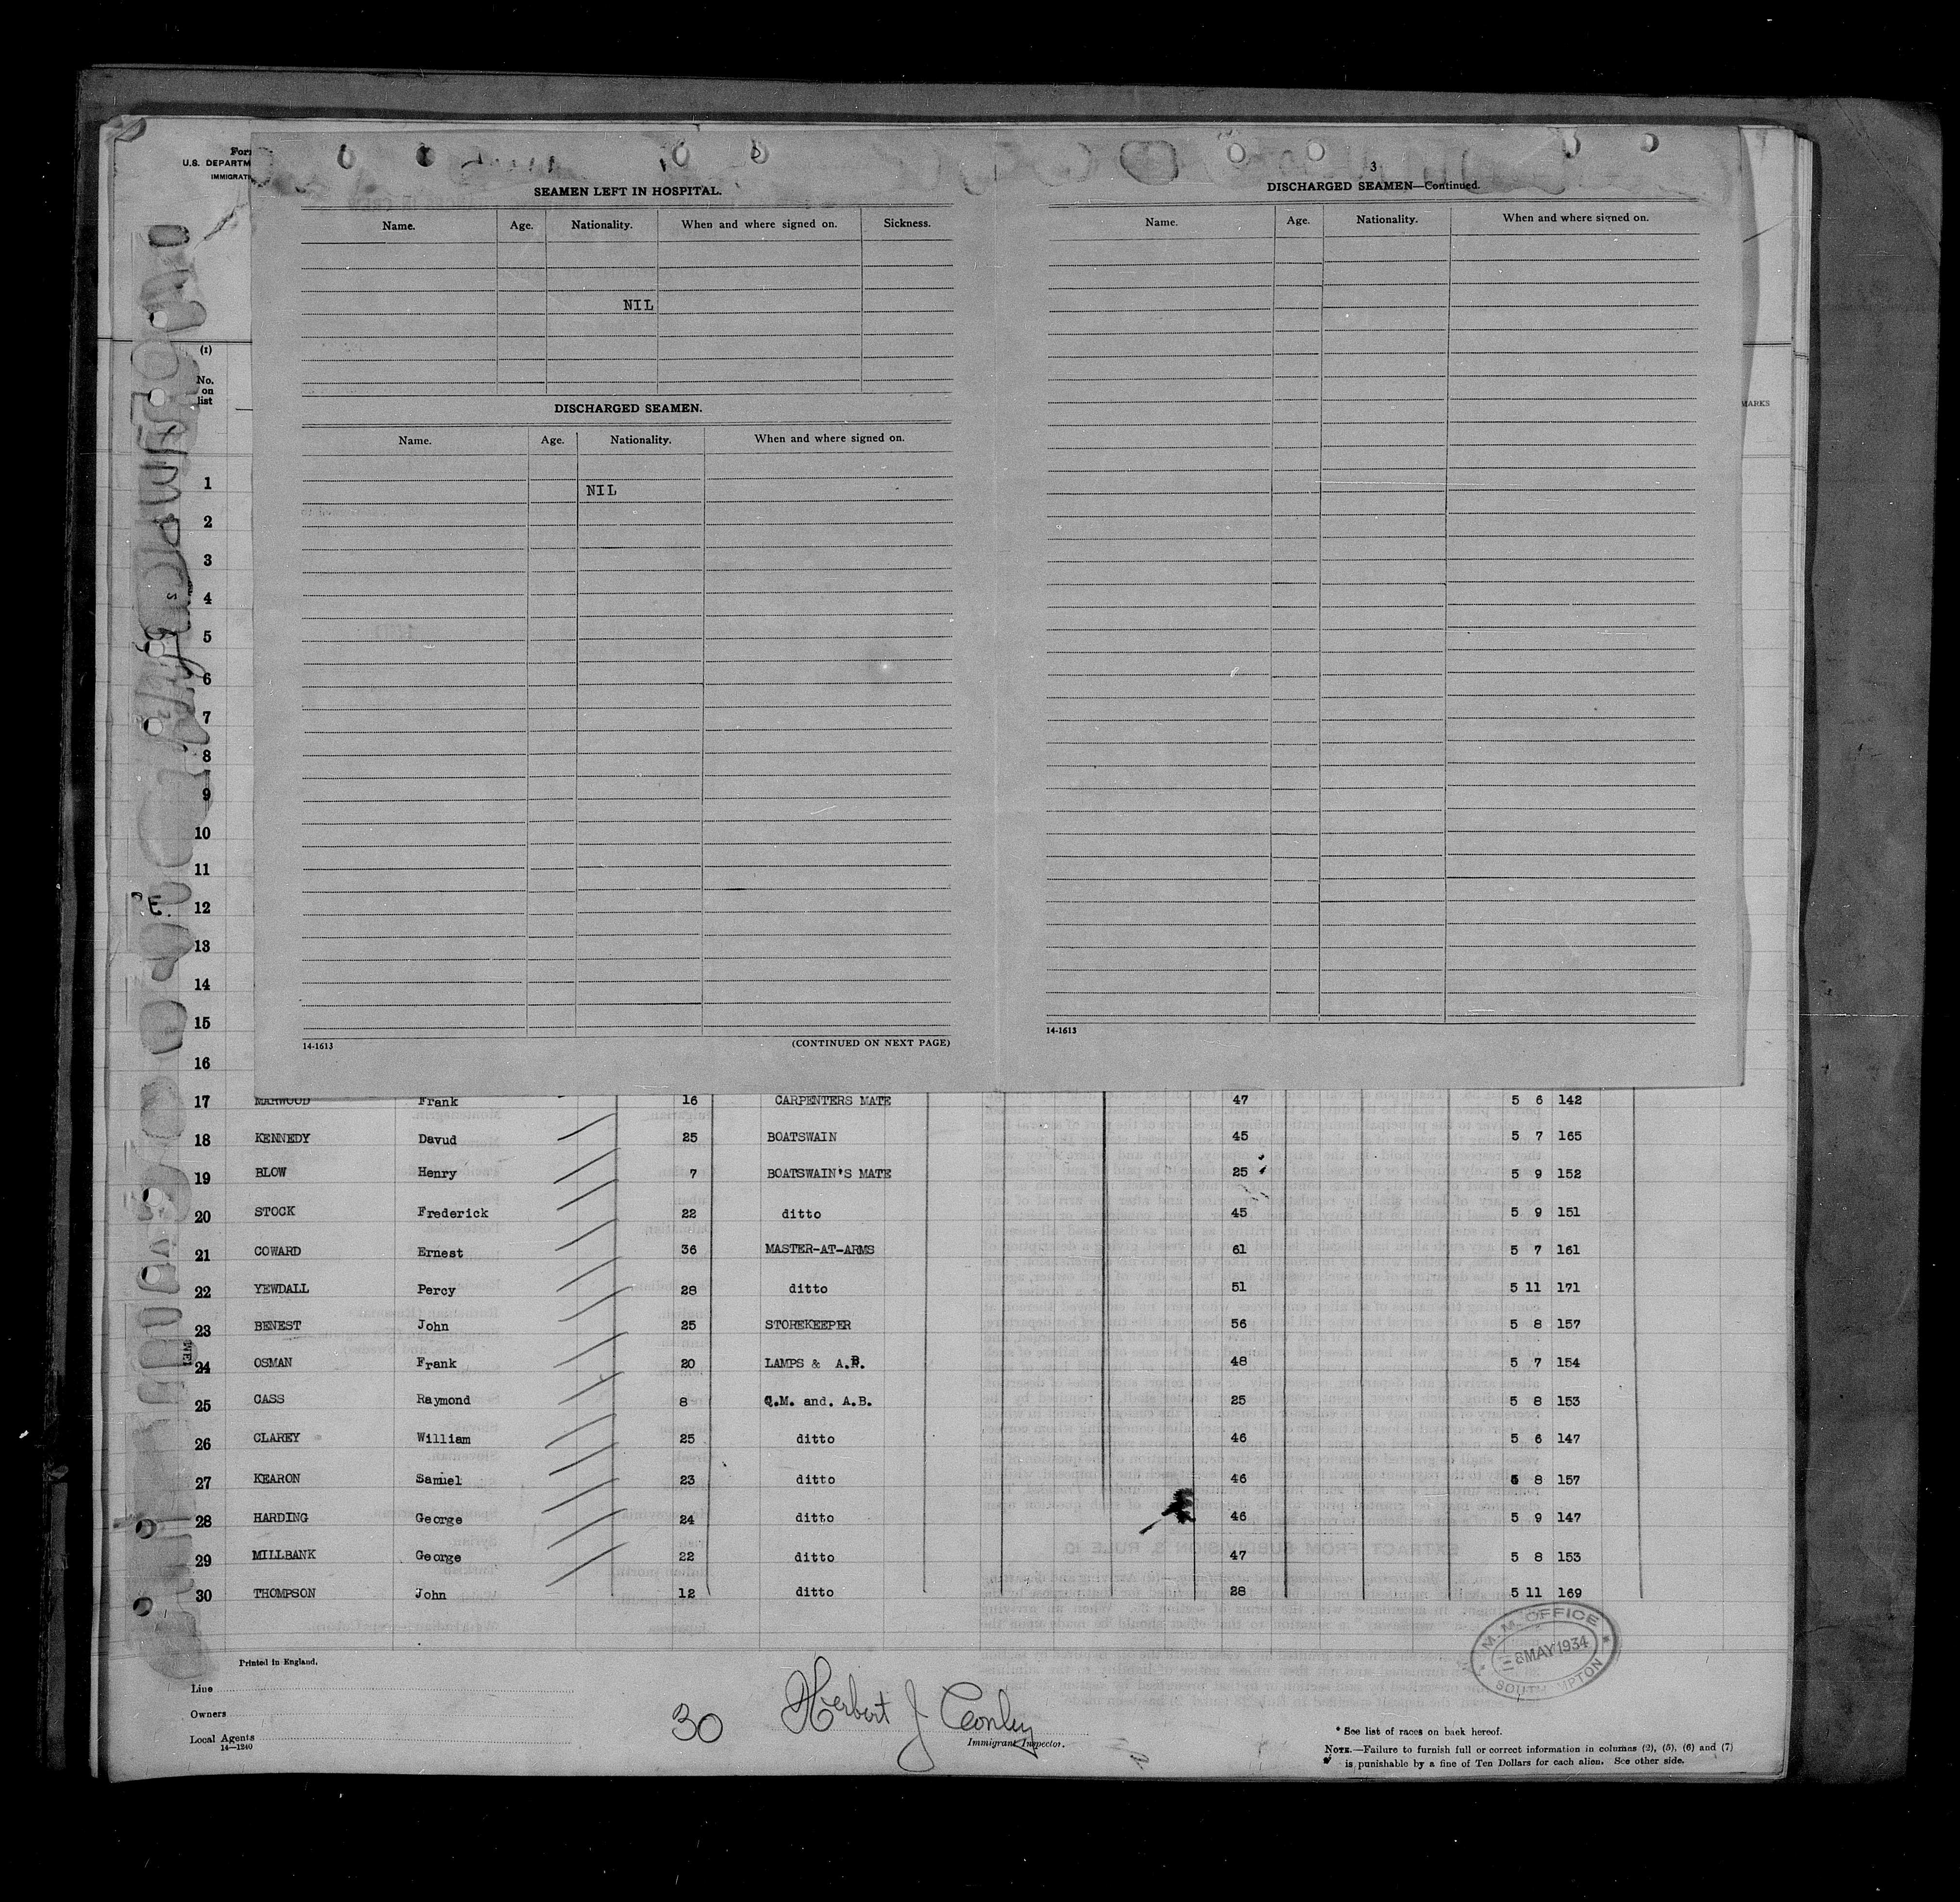 Form
U.S. DEPARTM
IMMIGRATI
(1)
No.
on
list
MARKS
SEAMEN LEFT IN HOSPITAL.
Name. Age. Nationality. When and where signed on. Sickness.
NIL
DISCHARGED SEAMEN.
Name. Age. Nationality. When and where signed on.
NIL
14-1613 (CONTINUED ON NEXT PAGE)
3
DISCHARGED SEAMEN—Continued.
Name. Age. Nationality. When and where signed on.
14-1613
1
2
3
4
5
6
7
8
9
10
11
12
13
14
15
16
17 MARWOOD Frank 16 CARPENTERS MATE 47 5 6 142
18 KENNEDY Davud 25 BOATSWAIN 45 5 7 165
19 BLOW Henry 7 BOATSWAIN'S MATE 25 5 9 152
20 STOCK Frederick 22 ditto 45 5 9 151
21 COWARD Ernest 36 MASTER-AT-ARMS 61 5 7 161
22 YEWDALL Percy 28 ditto 51 5 11 171
23 BENEST John 25 STOREKEEPER 56 5 8 157
24 OSMAN Frank 20 LAMPS & A.B. 48 5 7 154
25 CASS Raymond 8 Q.M. and. A.B. 25 5 8 153
26 CLAREY William 25 ditto 46 5 6 147
27 KEARON Samuel 23 ditto 46 8 157
28 HARDING George 24 ditto 46 5 9 147
29 MILLBANK George 22 ditto 47 5 8 153
30 THOMPSON John 12 ditto 28 5 11 169
M.M. OFFICE
8 MAY 1934
SOUTHAMPTON
Printed in England.
Line
Owners
Local Agents
14—1240
30 Herbert J Conley
Immigrant Inspector.
* See list of races on back hereof.
NOTE.—Failure to furnish full or correct information in columns (2), (5), (6) and (7)
is punishable by a fine of Ten Dollars for each alien. See other side.